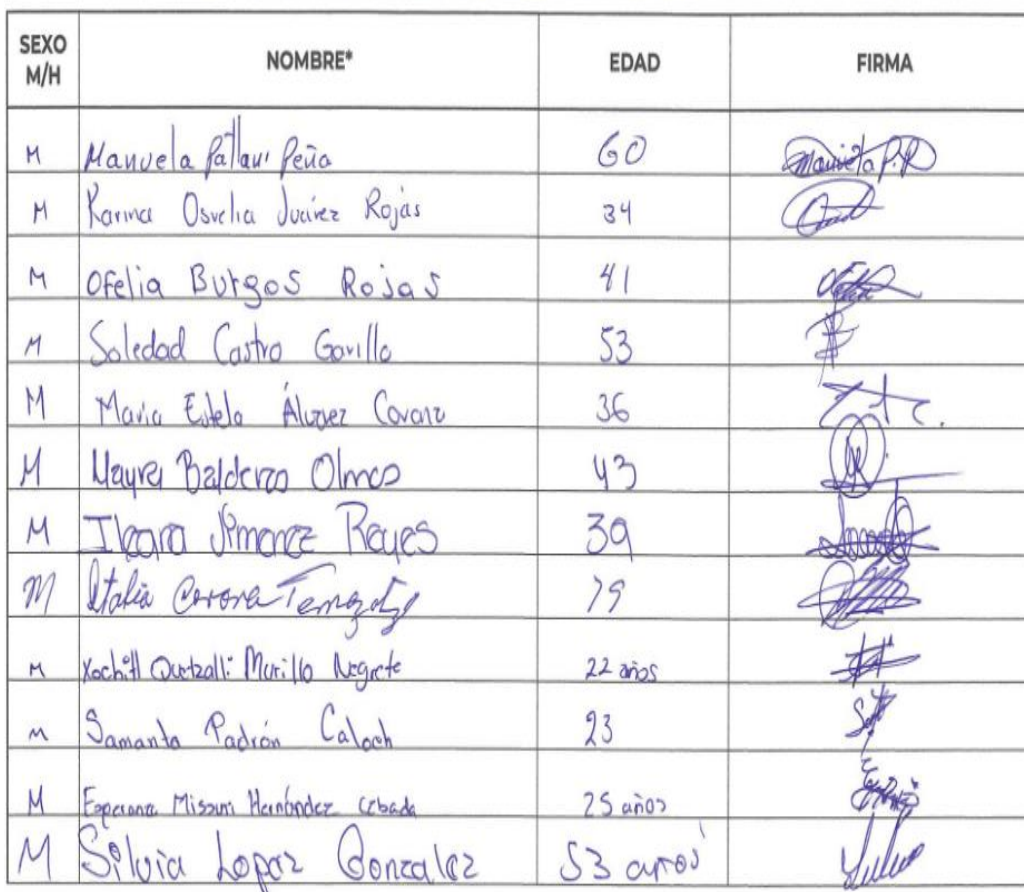 SEXO M/H NOMBRE* EDAD FIRMA
M Manuela Peña 60 Manuela P.P
M Karina Osvelia Juárez Rojas 34
M Ofelia Burgos Rojas 41
M Soledad Castro Gavilla 53
M Maria Estela Álvarez 36
M Mayra Balderas Olmos 43
M Jimenez Reyes 39
M Italia Corona
M Xochitl Quetzalli Murillo Negrete 22 años
M Samanta Padrón Caloch 23
M Esperanza Missuri Hernández Cebada 25 años
M Silvia Lopez Gonzalez 53 años